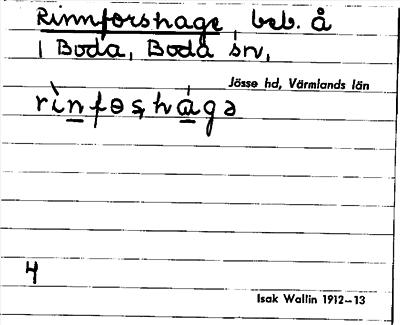 Rinnforshage, beb. å
i Boda, Boda sn,
Jösse hd, Värmlands län
rìnfɵʂhágə
4
Isak Wallin 1912–13